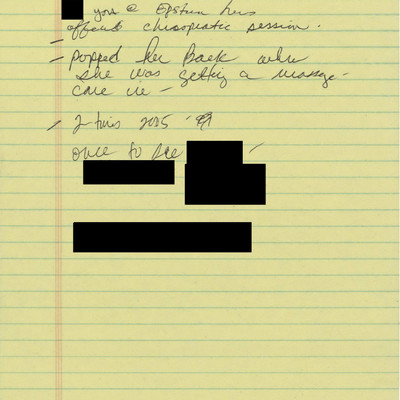 you @ Epstein his
offered chiropractic session.
- popped her Back when
she was getting a massage -
came in -
- 2 times 2005 -
once to see -